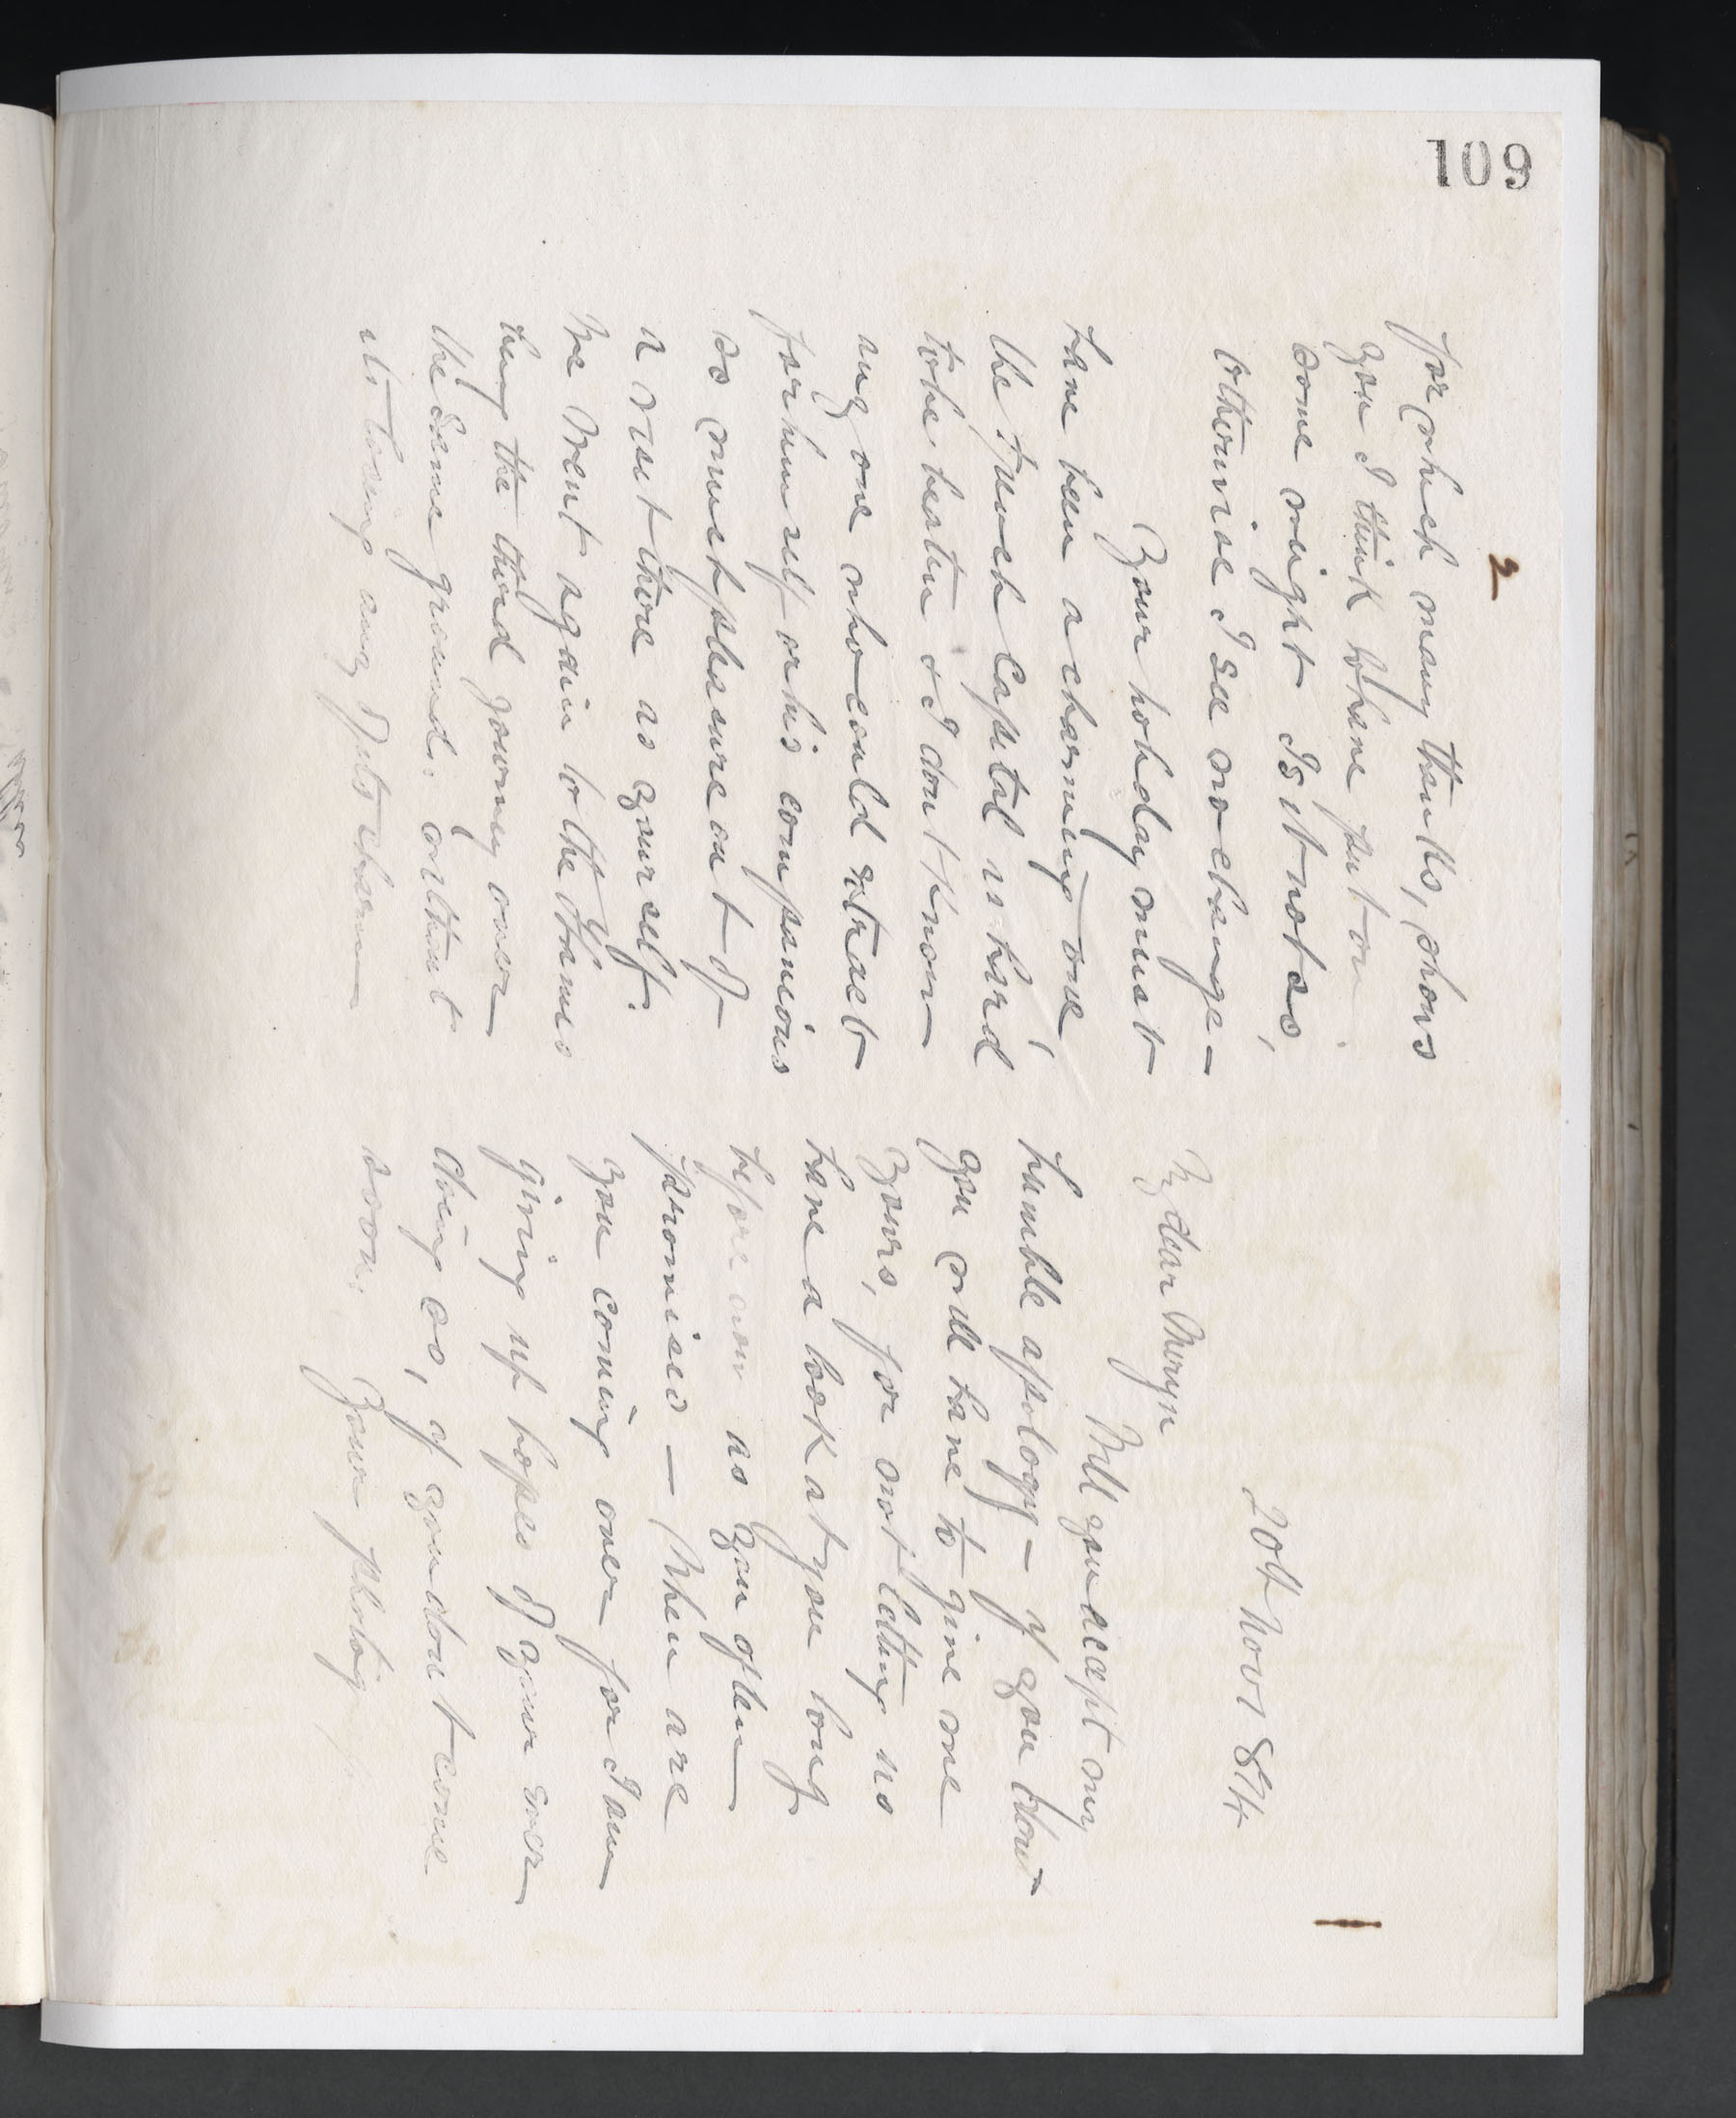 109
1
20th Novr 84
My dear Mervyn
Will you accept my
humble apology - if you don't
you will have to give me
yours, for not letting us
have a look at you long
before now as you often
promised — When are
you coming over for I am
giving up hopes of your ever
doing so, if you don't come
soon. Your photog
2
for which many thanks, shows
you I think to have put on
some weight Is it not so,
otherwise I see no change -
Your holiday must
have been a charming one,
the French Capital is hard
to be beaten & I don't know
any one who could extract
for himself or his companions
so much pleasure out of
a visit there as yourself.
We went again to the Thames
being the third journey over
the same ground: without
its losing any of its charm